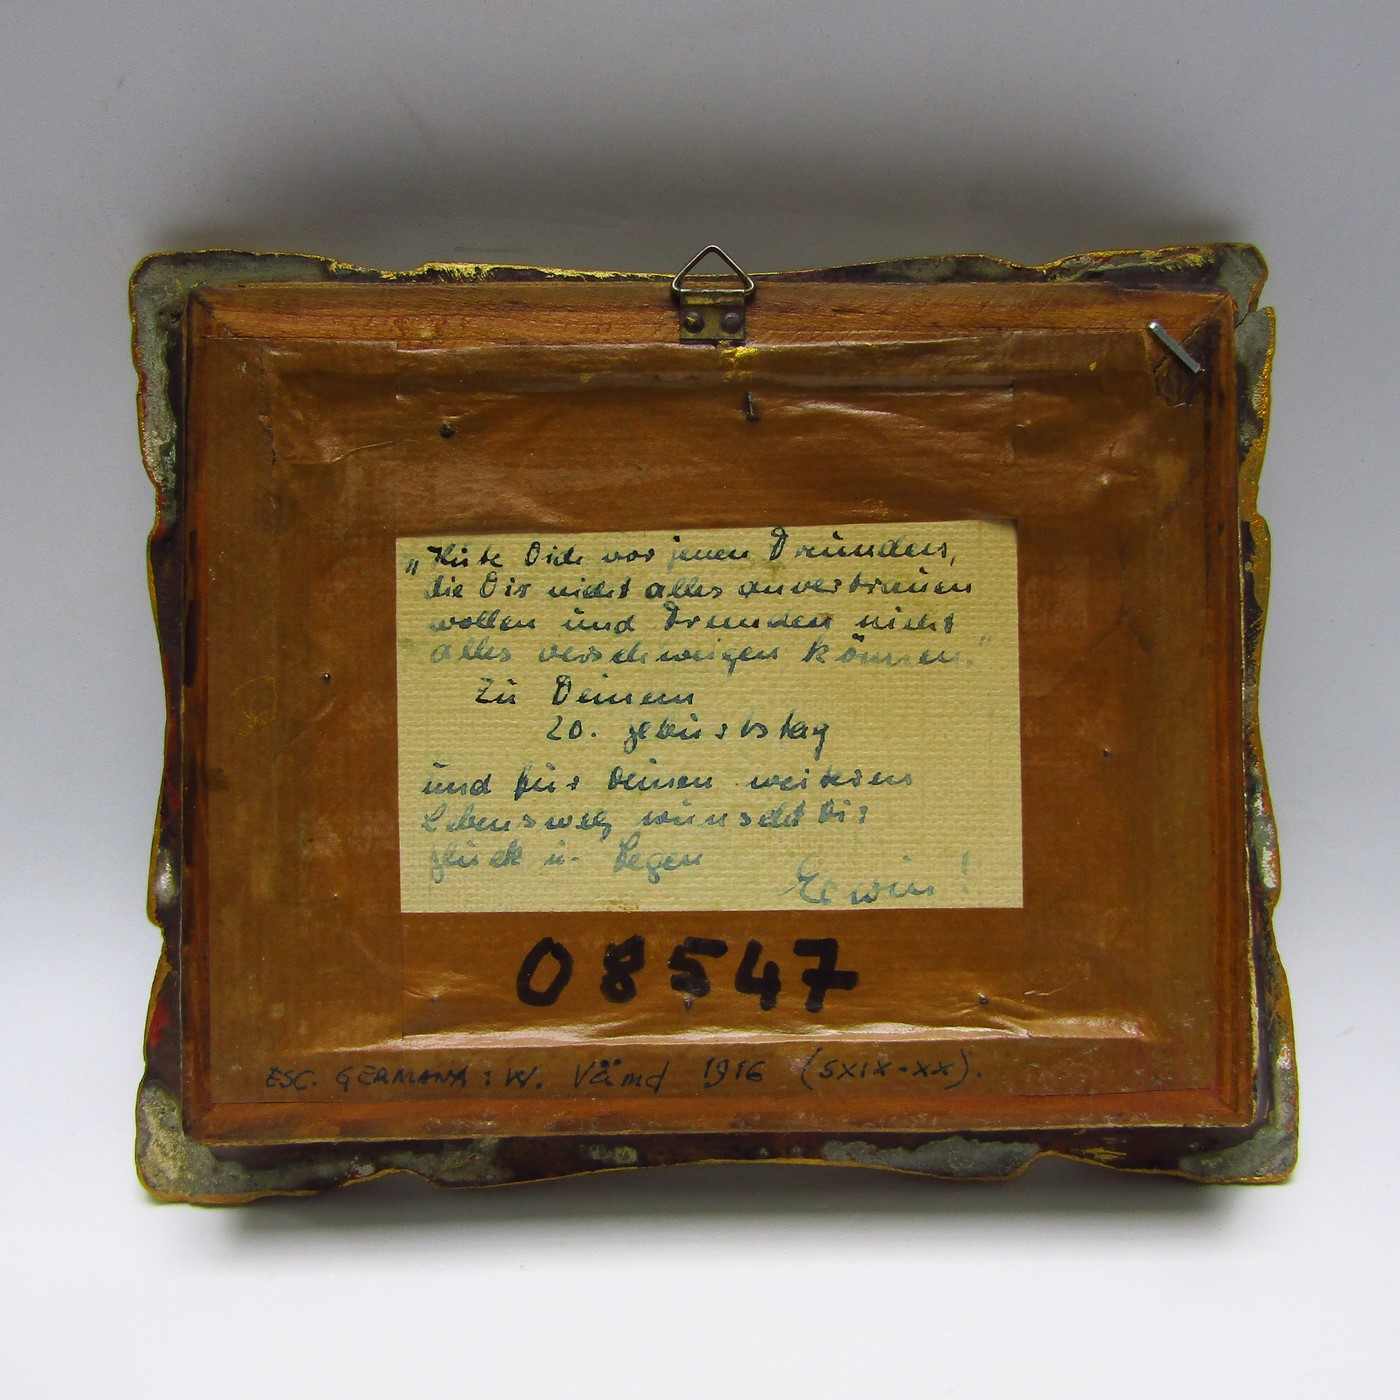 „Hüte Dich vor jenen Freunden,
die Dir nicht alles anvertrauen
wollen und Freunden nicht
alles verschweigen können."
Zu Deinem
20. Geburtstag
und für Deinen weiteren
Lebensweg wünscht Dir
Glück u. Segen
Erwin!
08547
ESC. GERMANA: W. 1916 (SXIX-XX).